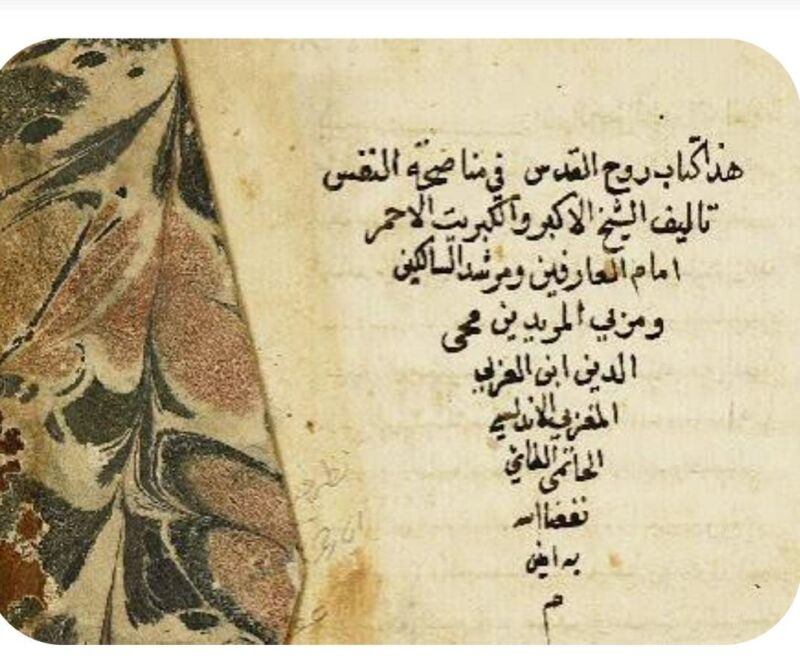 هذا كتاب روح القدس في مناصحة النفس
تاليف الشيخ الاكبر والكبريت الاحمر
امام العارفين ومرشد السالكين
ومربي المريدين محى
الدين ابن العربي
المغربي الاندلسي
الحاتمى الطايي
نفعنا الله
به امين
م